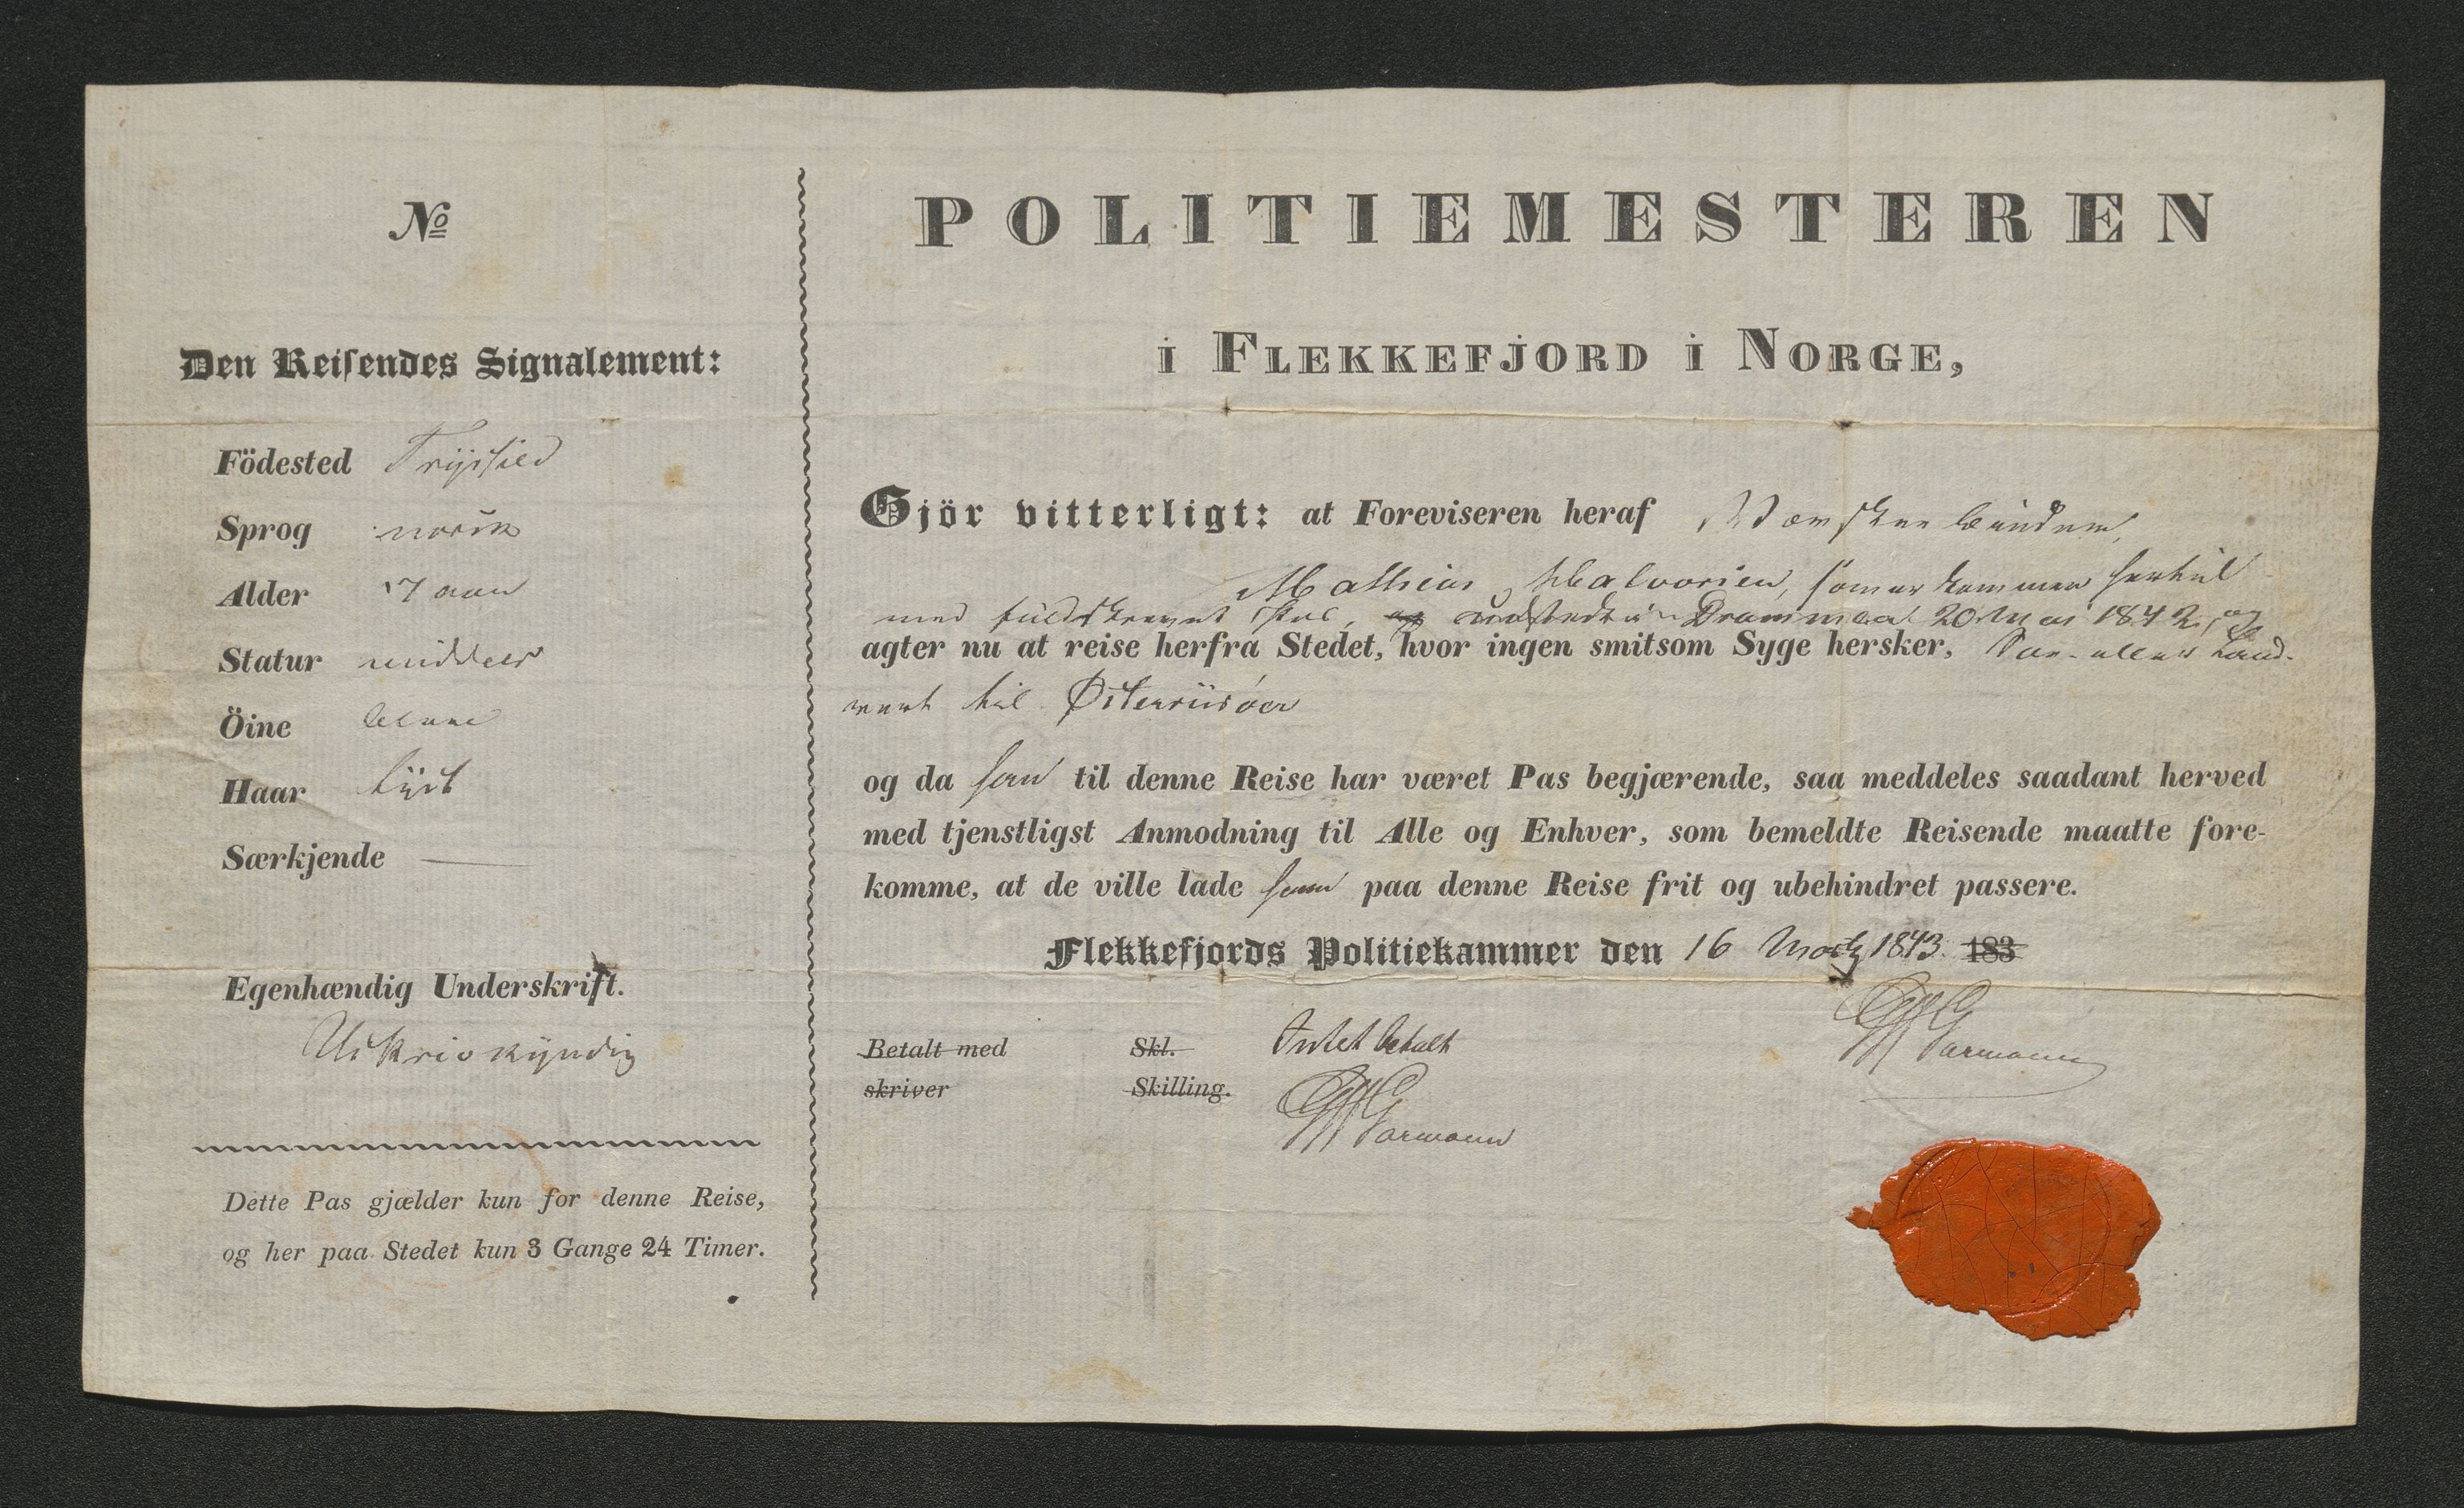 №
Den Reisendes Signalement:
Födested Trysild
Sprog norsk
Alder 17 aar
Statur middels
Öine blaae
Haar lyst
Særkjende —
Egenhændig Underskrift.
Uskrivkyndig
Dette Pas gjælder kun for denne Reise,
og her paa Stedet kun 3 Gange 24 Timer.
POLITIEMESTEREN
i Flekkefjord i Norge,
Gjör vitterligt: at Foreviseren heraf
Mathias Halvorsen, som er kommen hertil
med Pas, og udstedt i Drammen 20 Mai 1842, og
agter nu at reise herfra Stedet, hvor ingen smitsom Syge hersker, Søe- eller Land-
vert til Østerriisøer
og da han til denne Reise har været Pas begjærende, saa meddeles saadant herved
med tjenstligst Anmodning til Alle og Enhver, som bemeldte Reisende maatte fore-
komme, at de ville lade ham paa denne Reise frit og ubehindret passere.
Flekkefjords Politiekammer den 16 Marts 1843. 183
Garmann
Betalt med Skl. Intet betalt
skriver Skilling.
Garmann